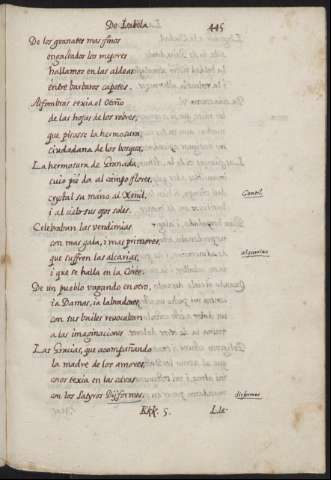 De Isabela
445
De los granates mas finos
engastados los mejores
hallamos en las aldeas
entre barbaros capotes.
Alfombras texia el Otoño
de las hojas de los robres,
que pisasse la hermosura,
ciudadana de los bosques,
La hermosura de Granada,
cuio pie da al campo flores,
crystal su mano al Xenil,
Genil,
i al cielo sus ojos soles.
Celebraban las vendimias
con mas gala, i mas primores,
que suffren las alcarias,
alcarias
i que se halla en la Corte.
De un pueblo vagando en otro,
ia Damas, ia labradores,
con sus bailes revocaban
a las imaginaciones
Las Gracias, que acompañando
la madre de los amores,
choros texia en las selvas
con los Satyros Disformes.
disformes
Kkk. 5.